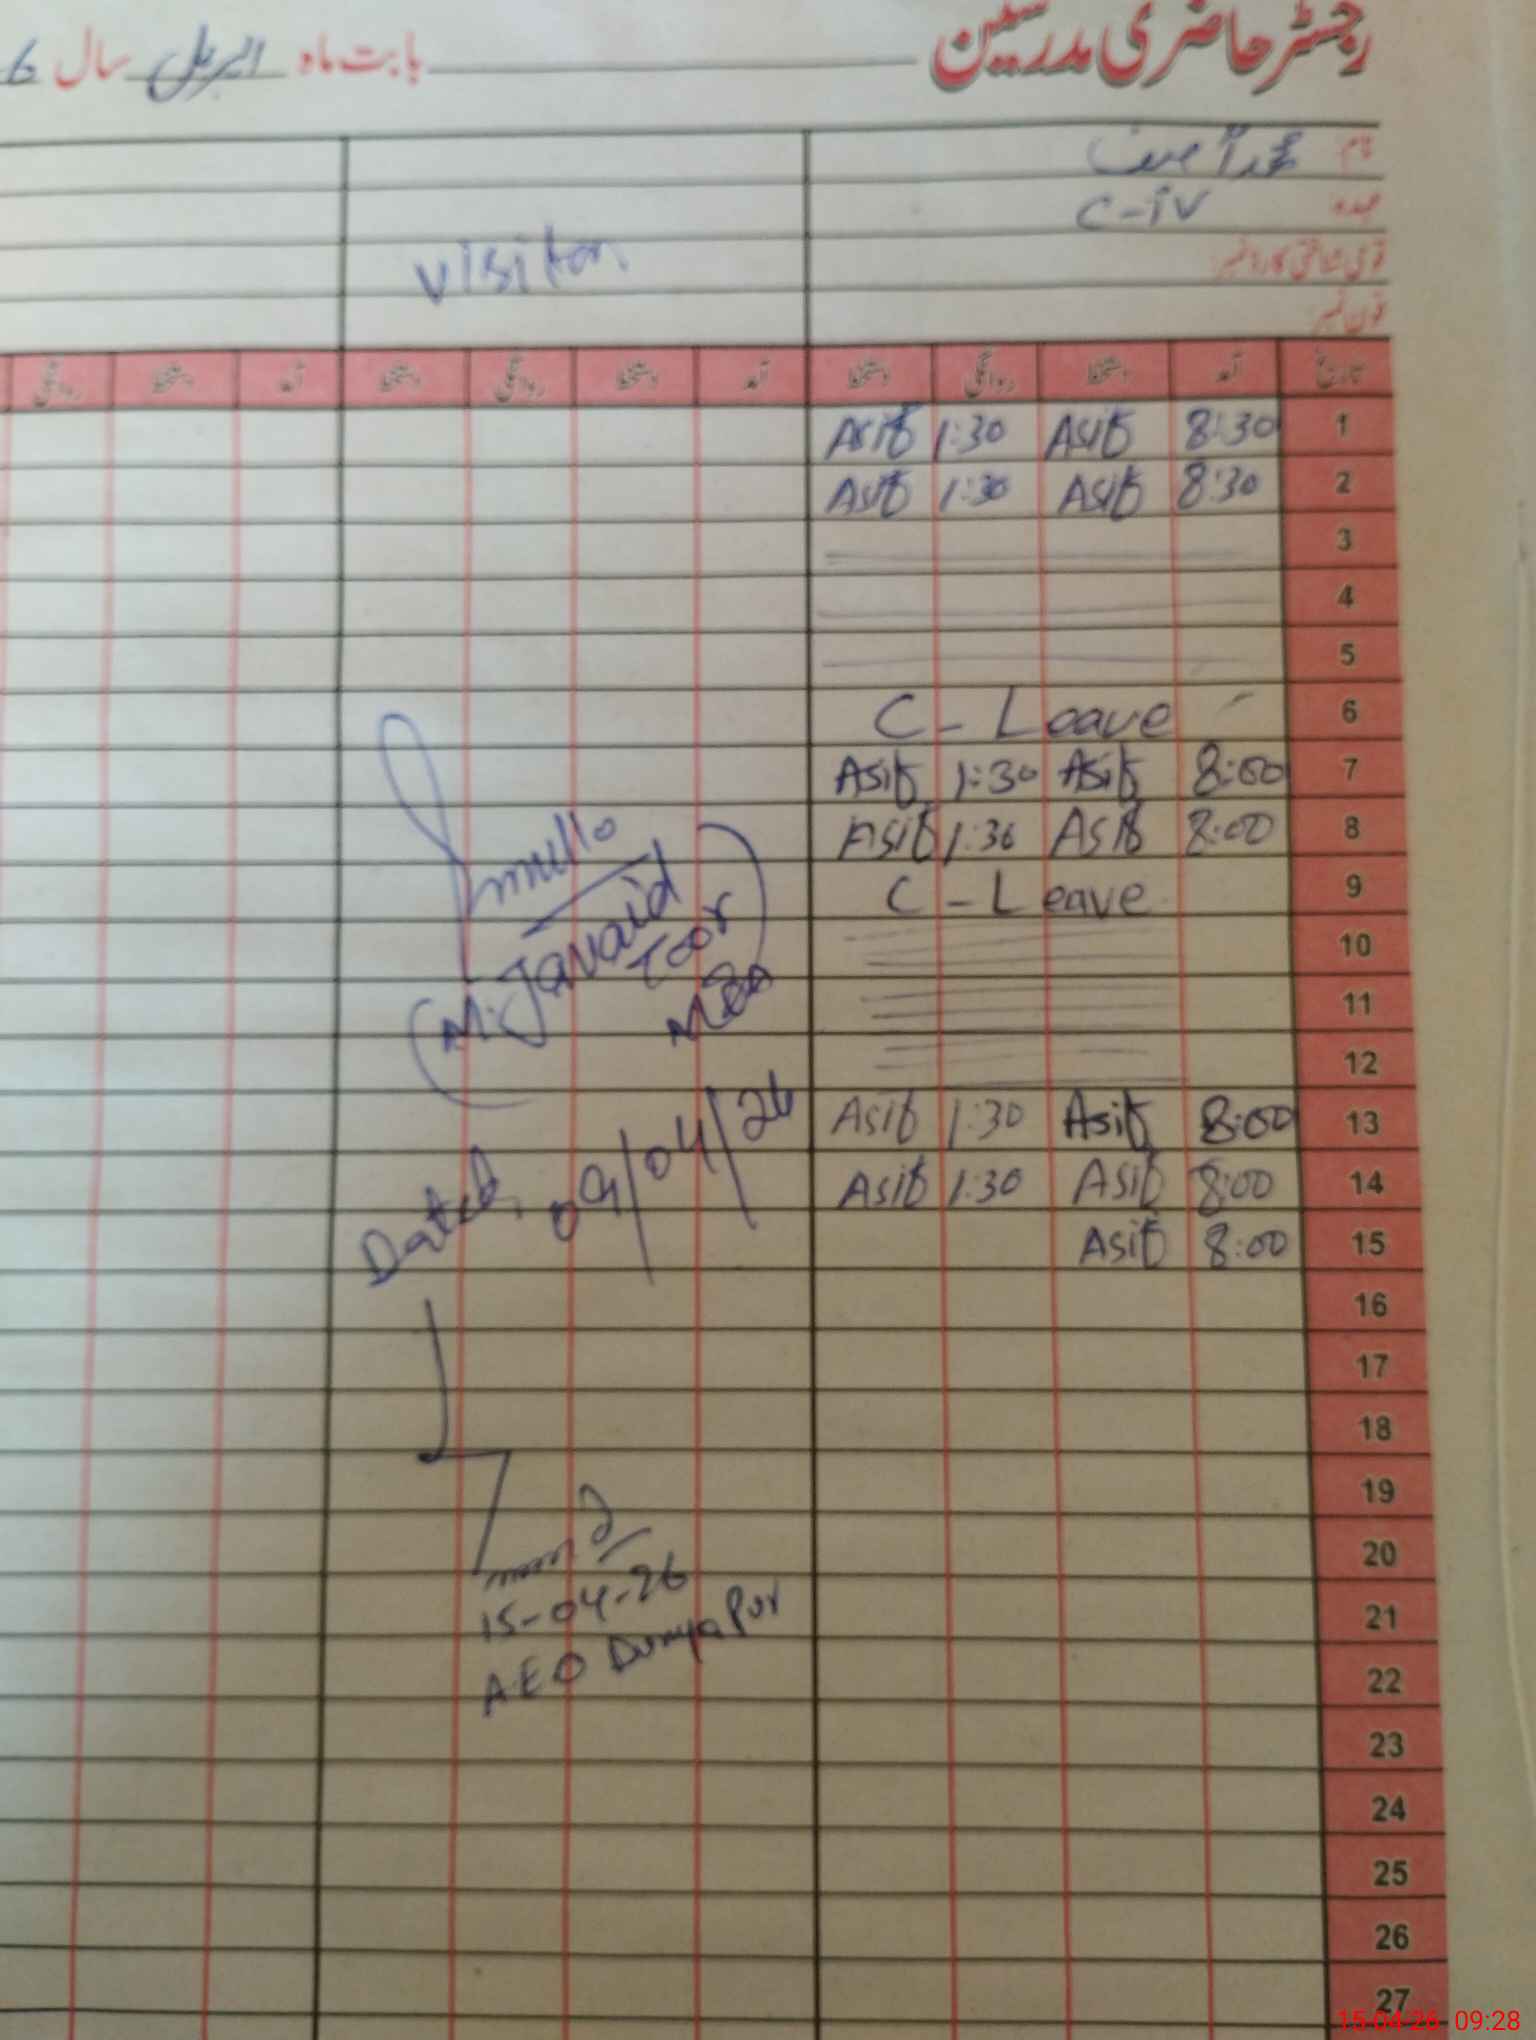 رجسٹر حاضری مدرسین
بابت ماہ اپریل سال 6
نام محمد آصف
عہدہ C-iv
قومی شناختی کارڈ نمبر:
فون نمبر:
visitor
تاریخ آمد دستخط روانگی دستخط آمد دستخط روانگی دستخط آمد دستخط روانگی
1 8:30 Asif 1:30 Asif
2 8:30 Asif 1:30 Asif
3
4
5
6 C-Leave
7 8:00 Asif 1:30 Asif
8 8:00 Asif 1:30 Asif
9 C-Leave
10
11
12
13 8:00 Asif 1:30 Asif
14 8:00 Asif 1:30 Asif
15 8:00 Asif
16
17
18
19
20
21
22
23
24
25
26
27
(M. Javaid
Toor
MEA)
Dated, 09/04/26
15-04-26
A.E.O Dunya Pur
15-04-26 09:28